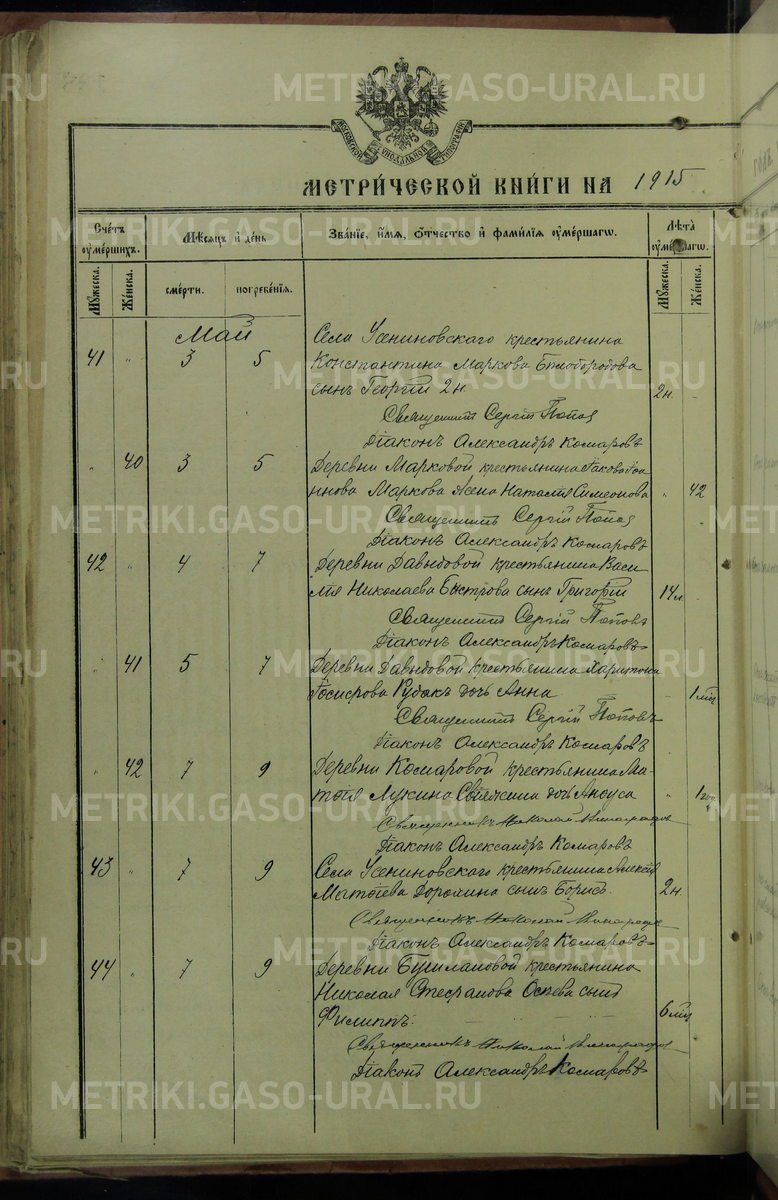 METRIKI.GASO-URAL.RU
МОСКОВСКОЙ СѴНОДАЛЬНОЙ ТИПОГРАФІИ
МЕТРИ́ЧЕСКОЙ КНИ́ГИ НА 1915
Сче́тъ ᲂу҆ме́ршихъ.
Мѣ́сяцъ и҆ де́нь
Зва́нїе, и҆́мѧ, ѻ҆́тчество и҆ фами́лїѧ ᲂу҆ме́ршагѡ.
Лѣ́та ᲂу҆ме́ршагѡ.
Мꙋ́жеска.
Же́нска.
сме́рти.
погребе́нїѧ.
Мꙋ́жеска.
Же́нска.
Май
Села Усениновскаго крестьянина
41 " 3 5 Константина Маркова Бѣлобородова
сынъ Георгій 2 н. 2 н.
Священникъ Сергій Попов
Діаконъ Александръ Комаровъ
" 40 3 5 Деревни Марковой крестьянина Іакова Іоан
нова Маркова жена Наталія Симеонова " 42
Священникъ Сергій Попов
Діаконъ Александръ Комаровъ
42 " 4 7 Деревни Давыдовой крестьянина Васи
лія Николаева Быстрова сынъ Григорій 14 л.
Священникъ Сергій Поповъ
Діаконъ Александръ Комаровъ
" 41 5 7 Деревни Давыдовой крестьянина Харитона
дочь Анна 1 мѣс
Священникъ Сергій Поповъ
Діаконъ Александръ Комаровъ
" 42 7 9 Деревни Комаровой крестьянина Ма-
тѳія Лукина дочь Анѳуса " 1 год
Священникъ Николай Виноградов
Діаконъ Александръ Комаровъ
43 " 7 9 Села Усениновскаго крестьянина Алексія
Матѳіева Дорохина сынъ Борисъ. 2 н.
Священникъ Николай Виноградов
Діаконъ Александръ Комаровъ
44 " 7 9 Деревни крестьянина
Николая Стефанова сынъ
Филиппъ. 6 мѣс
Священникъ Николай Виноградов
Діаконъ Александръ Комаровъ